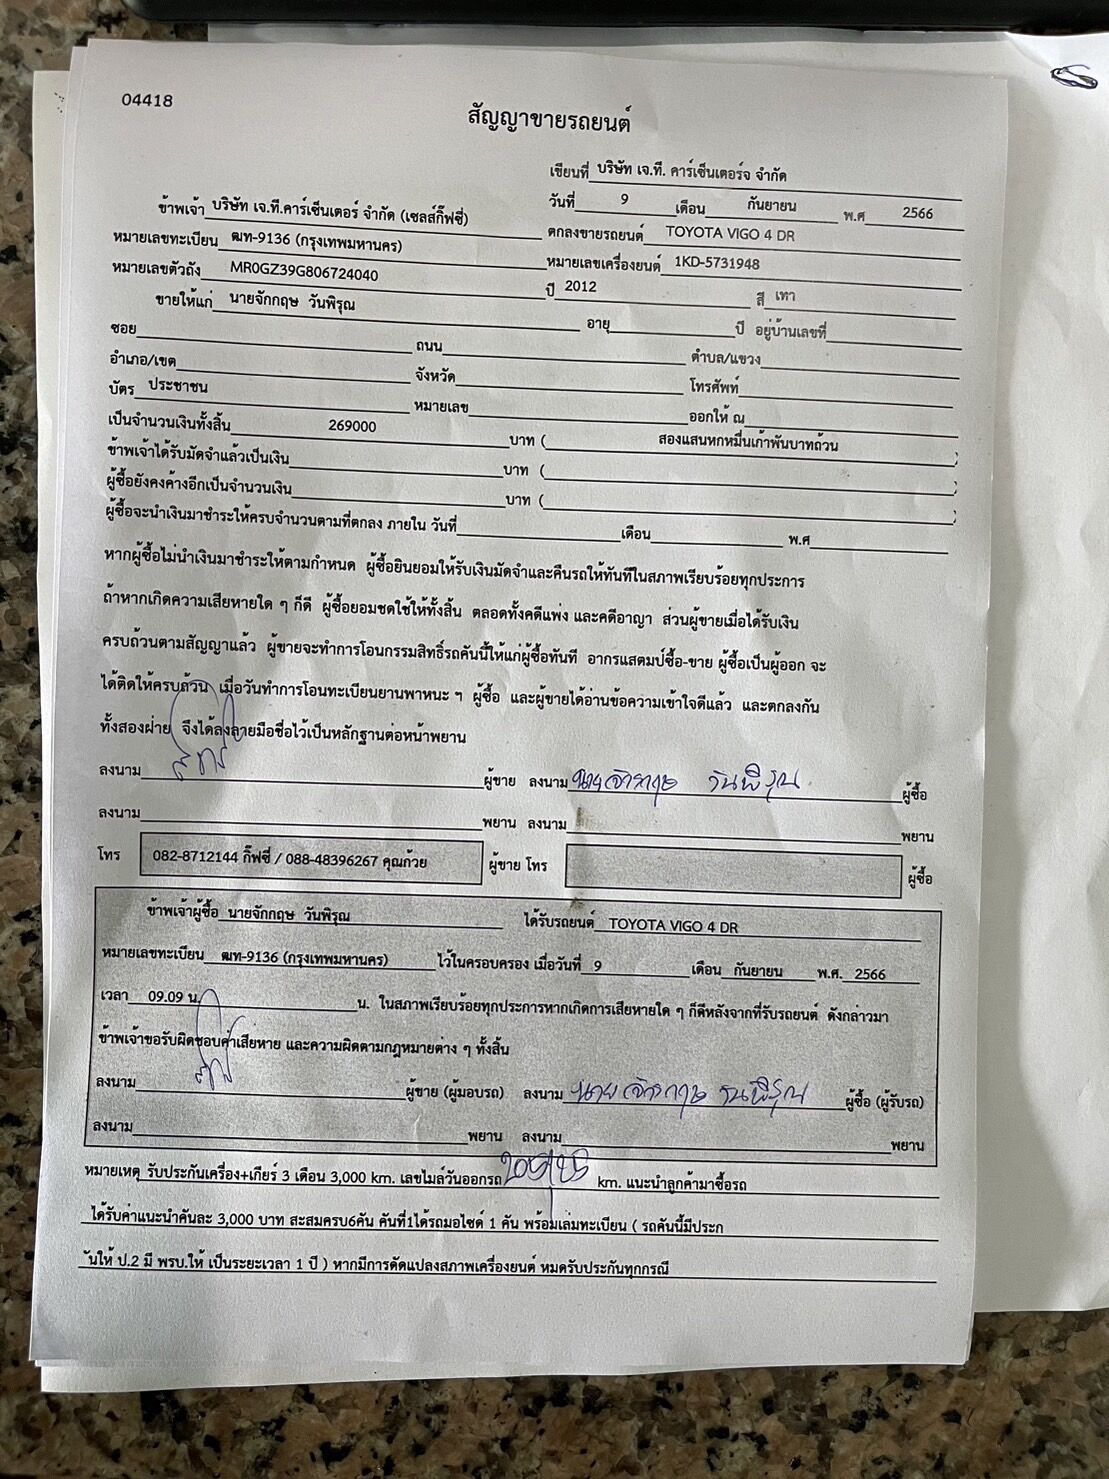 04418
สัญญาขายรถยนต์
เขียนที่ บริษัท เจ.ที. คาร์เซ็นเตอร์จ จำกัด
วันที่ 9 เดือน กันยายน พ.ศ 2566
ข้าพเจ้า บริษัท เจ.ที.คาร์เซ็นเตอร์ จำกัด (เซลส์กิ๊ฟซี่) ตกลงขายรถยนต์ TOYOTA VIGO 4 DR
หมายเลขทะเบียน ฒท-9136 (กรุงเทพมหานคร) หมายเลขเครื่องยนต์ 1KD-5731948
หมายเลขตัวถัง MR0GZ39G806724040 ปี 2012 สี เทา
ขายให้แก่ นายจักกฤษ วันพิรุณ อายุ ปี อยู่บ้านเลขที่
ซอย ถนน ตำบล/แขวง
อำเภอ/เขต จังหวัด โทรศัพท์
บัตร ประชาชน หมายเลข ออกให้ ณ
เป็นจำนวนเงินทั้งสิ้น 269000 บาท ( สองแสนหกหมื่นเก้าพันบาทถ้วน )
ข้าพเจ้าได้รับมัดจำแล้วเป็นเงิน บาท ( )
ผู้ซื้อยังคงค้างอีกเป็นจำนวนเงิน บาท ( )
ผู้ซื้อจะนำเงินมาชำระให้ครบจำนวนตามที่ตกลง ภายใน วันที่ เดือน พ.ศ
หากผู้ซื้อไม่นำเงินมาชำระให้ตามกำหนด ผู้ซื้อยินยอมให้รับเงินมัดจำและคืนรถให้ทันทีในสภาพเรียบร้อยทุกประการ
ถ้าหากเกิดความเสียหายใด ๆ ก็ดี ผู้ซื้อยอมชดใช้ให้ทั้งสิ้น ตลอดทั้งคดีแพ่ง และคดีอาญา ส่วนผู้ขายเมื่อได้รับเงิน
ครบถ้วนตามสัญญาแล้ว ผู้ขายจะทำการโอนกรรมสิทธิ์รถคันนี้ให้แก่ผู้ซื้อทันที อากรแสตมป์ซื้อ-ขาย ผู้ซื้อเป็นผู้ออก จะ
ได้ติดให้ครบถ้วน เมื่อวันทำการโอนทะเบียนยานพาหนะ ฯ ผู้ซื้อ และผู้ขายได้อ่านข้อความเข้าใจดีแล้ว และตกลงกัน
ทั้งสองฝ่าย จึงได้ลงลายมือชื่อไว้เป็นหลักฐานต่อหน้าพยาน
ลงนาม ผู้ขาย ลงนาม นายจักรกฤษ วันพิรุณ ผู้ซื้อ
ลงนาม พยาน ลงนาม พยาน
โทร 082-8712144 กิ๊ฟซี่ / 088-48396267 คุณก้วย ผู้ขาย โทร ผู้ซื้อ
ข้าพเจ้าผู้ซื้อ นายจักกฤษ วันพิรุณ ได้รับรถยนต์ TOYOTA VIGO 4 DR
หมายเลขทะเบียน ฒท-9136 (กรุงเทพมหานคร) ไว้ในครอบครอง เมื่อวันที่ 9 เดือน กันยายน พ.ศ. 2566
เวลา 09.09 น. น. ในสภาพเรียบร้อยทุกประการหากเกิดการเสียหายใด ๆ ก็ดีหลังจากที่รับรถยนต์ ดังกล่าวมา
ข้าพเจ้าขอรับผิดชอบค่าเสียหาย และความผิดตามกฎหมายต่าง ๆ ทั้งสิ้น
ลงนาม ผู้ขาย (ผู้มอบรถ) ลงนาม นายจักรกฤษ วันพิรุณ ผู้ซื้อ (ผู้รับรถ)
ลงนาม พยาน ลงนาม พยาน
หมายเหตุ รับประกันเครื่อง+เกียร์ 3 เดือน 3,000 km. เลขไมล์วันออกรถ km. แนะนำลูกค้ามาซื้อรถ
ได้รับค่าแนะนำคันละ 3,000 บาท สะสมครบ6คัน คันที่1ได้รถมอไซด์ 1 คัน พร้อมเล่มทะเบียน ( รถคันนี้มีประก
ันให้ ป.2 มี พรบ.ให้ เป็นระยะเวลา 1 ปี ) หากมีการดัดแปลงสภาพเครื่องยนต์ หมดรับประกันทุกกรณี